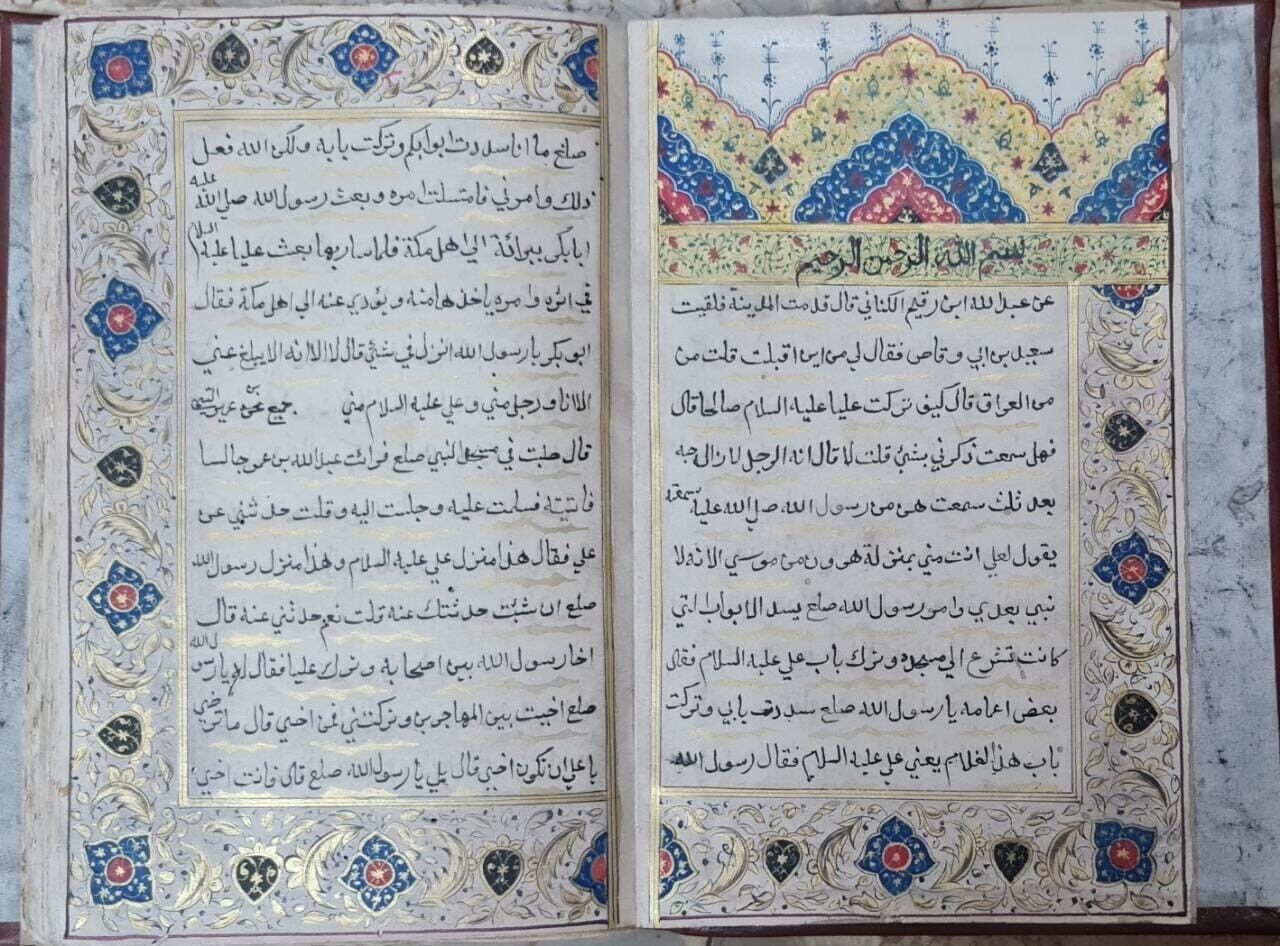 بسم الله الرحمن الرحيم
عن عبد الله ابن رقيم الكناني قال قدمت المدينة فلقيت
سعيد بن ابي وقاص فقال لي من اين اقبلت قلت من
من العراق قال كيف تركت عليا عليه السلام صالحا قال
فهل سمعت ذكرني بشئ قلت لا قال انه الرجل لا ازال حبه
بعد ثلث سمعت هن من رسول الله صلي الله عليه سمعته
يقول لعلي انت مني بمنزلة هرون من موسي الا انه لا
نبي بعدي وامر رسول الله صلع بسد الابواب التي
كانت تشرع الي مسجده وترك باب علي عليه السلام فقال
بعض اعمامه يا رسول الله صلع سددت بابي وتركت
باب هذا الغلام يعني علي عليه السلام فقال رسول الله
صلع ما انا سددت ابوابكم وتركت بابه ولكن الله فعل
ذلك وامرني فامتسلت امره وبعث رسول الله صلي الله عليه السلام
ابا بكر ببرائة الي اهل مكة فلما سار بها بعث عليا عليه
في اثره وامره ياخذها منه ويؤدي عنه الي اهل مكة فقال
ابو بكر يا رسول الله انزل في شئي قال لا الا انه لا يبلغ عني
الا انا ورجل مني وعلي عليه السلام مني جميع بن عمير التيمي
قال طبت في مسجد النبي صلع فرائت عبد الله بن عمر جالسا
فاتيته فسلمت عليه وجلست اليه وقلت حدثني عن
علي فقال هذا منزل علي عليه السلام وهذا منزل رسول الله
صلع ان شئت حدثتك عنه قلت نعم حدثني عنه قال
اخا رسول الله بين اصحابه وترك عليا فقال له يا رسول الله
صلع اخيت بين المهاجرين وتركتني فمن اخي قال ما ترضي
يا علي ان تكون اخي قال بلي يا رسول الله صلع قال فانت اخي